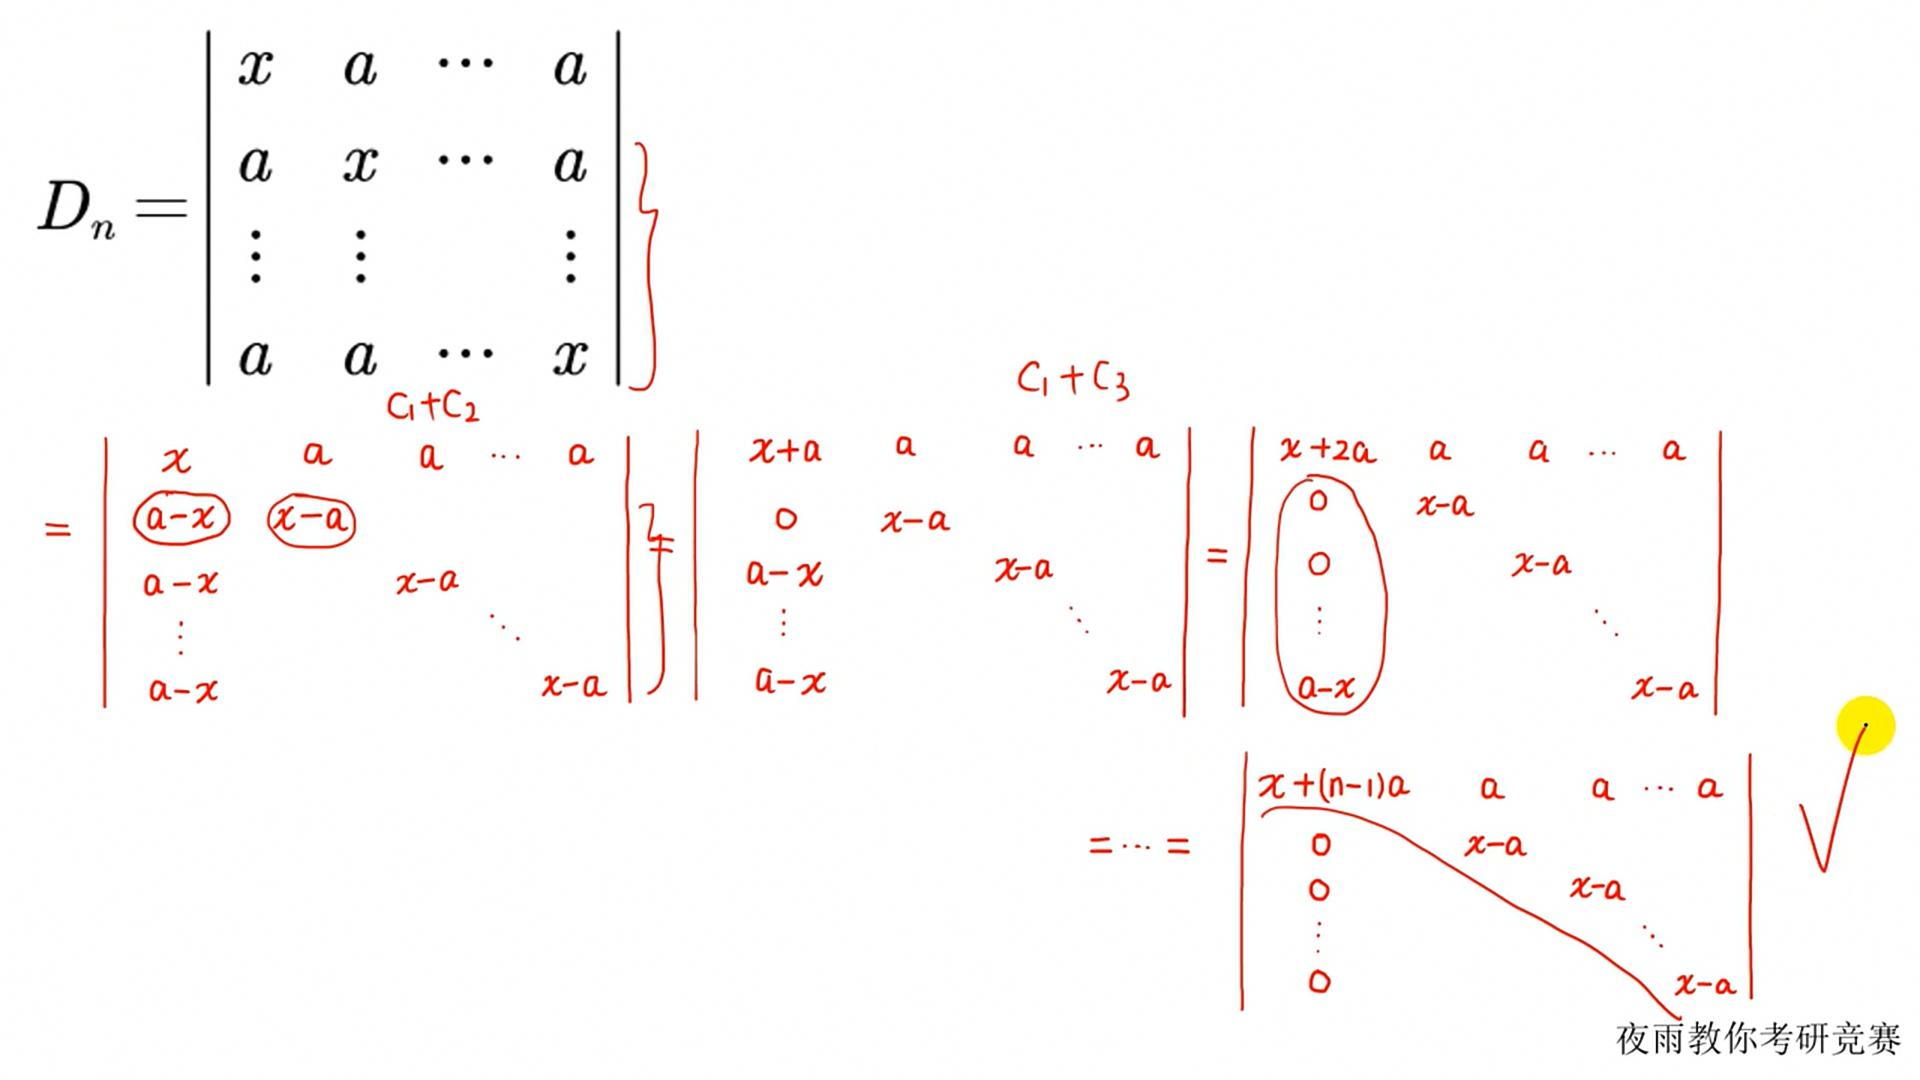 x a ⋯ a
a x ⋯ a
Dₙ =
⋮ ⋮ ⋮
a a ⋯ x
C₁+C₂
C₁+C₃
x a a ⋯ a
= a-x x-a
a-x x-a
⋮ ⋱
a-x x-a
= x+a a a ⋯ a
0 x-a
a-x x-a
⋮ ⋱
a-x x-a
= x+2a a a ⋯ a
0 x-a
0 x-a
⋮ ⋱
a-x x-a
x+(n-1)a a a ⋯ a
=⋯= 0 x-a
0 x-a
⋮ ⋱
0 x-a
夜雨教你考研竞赛